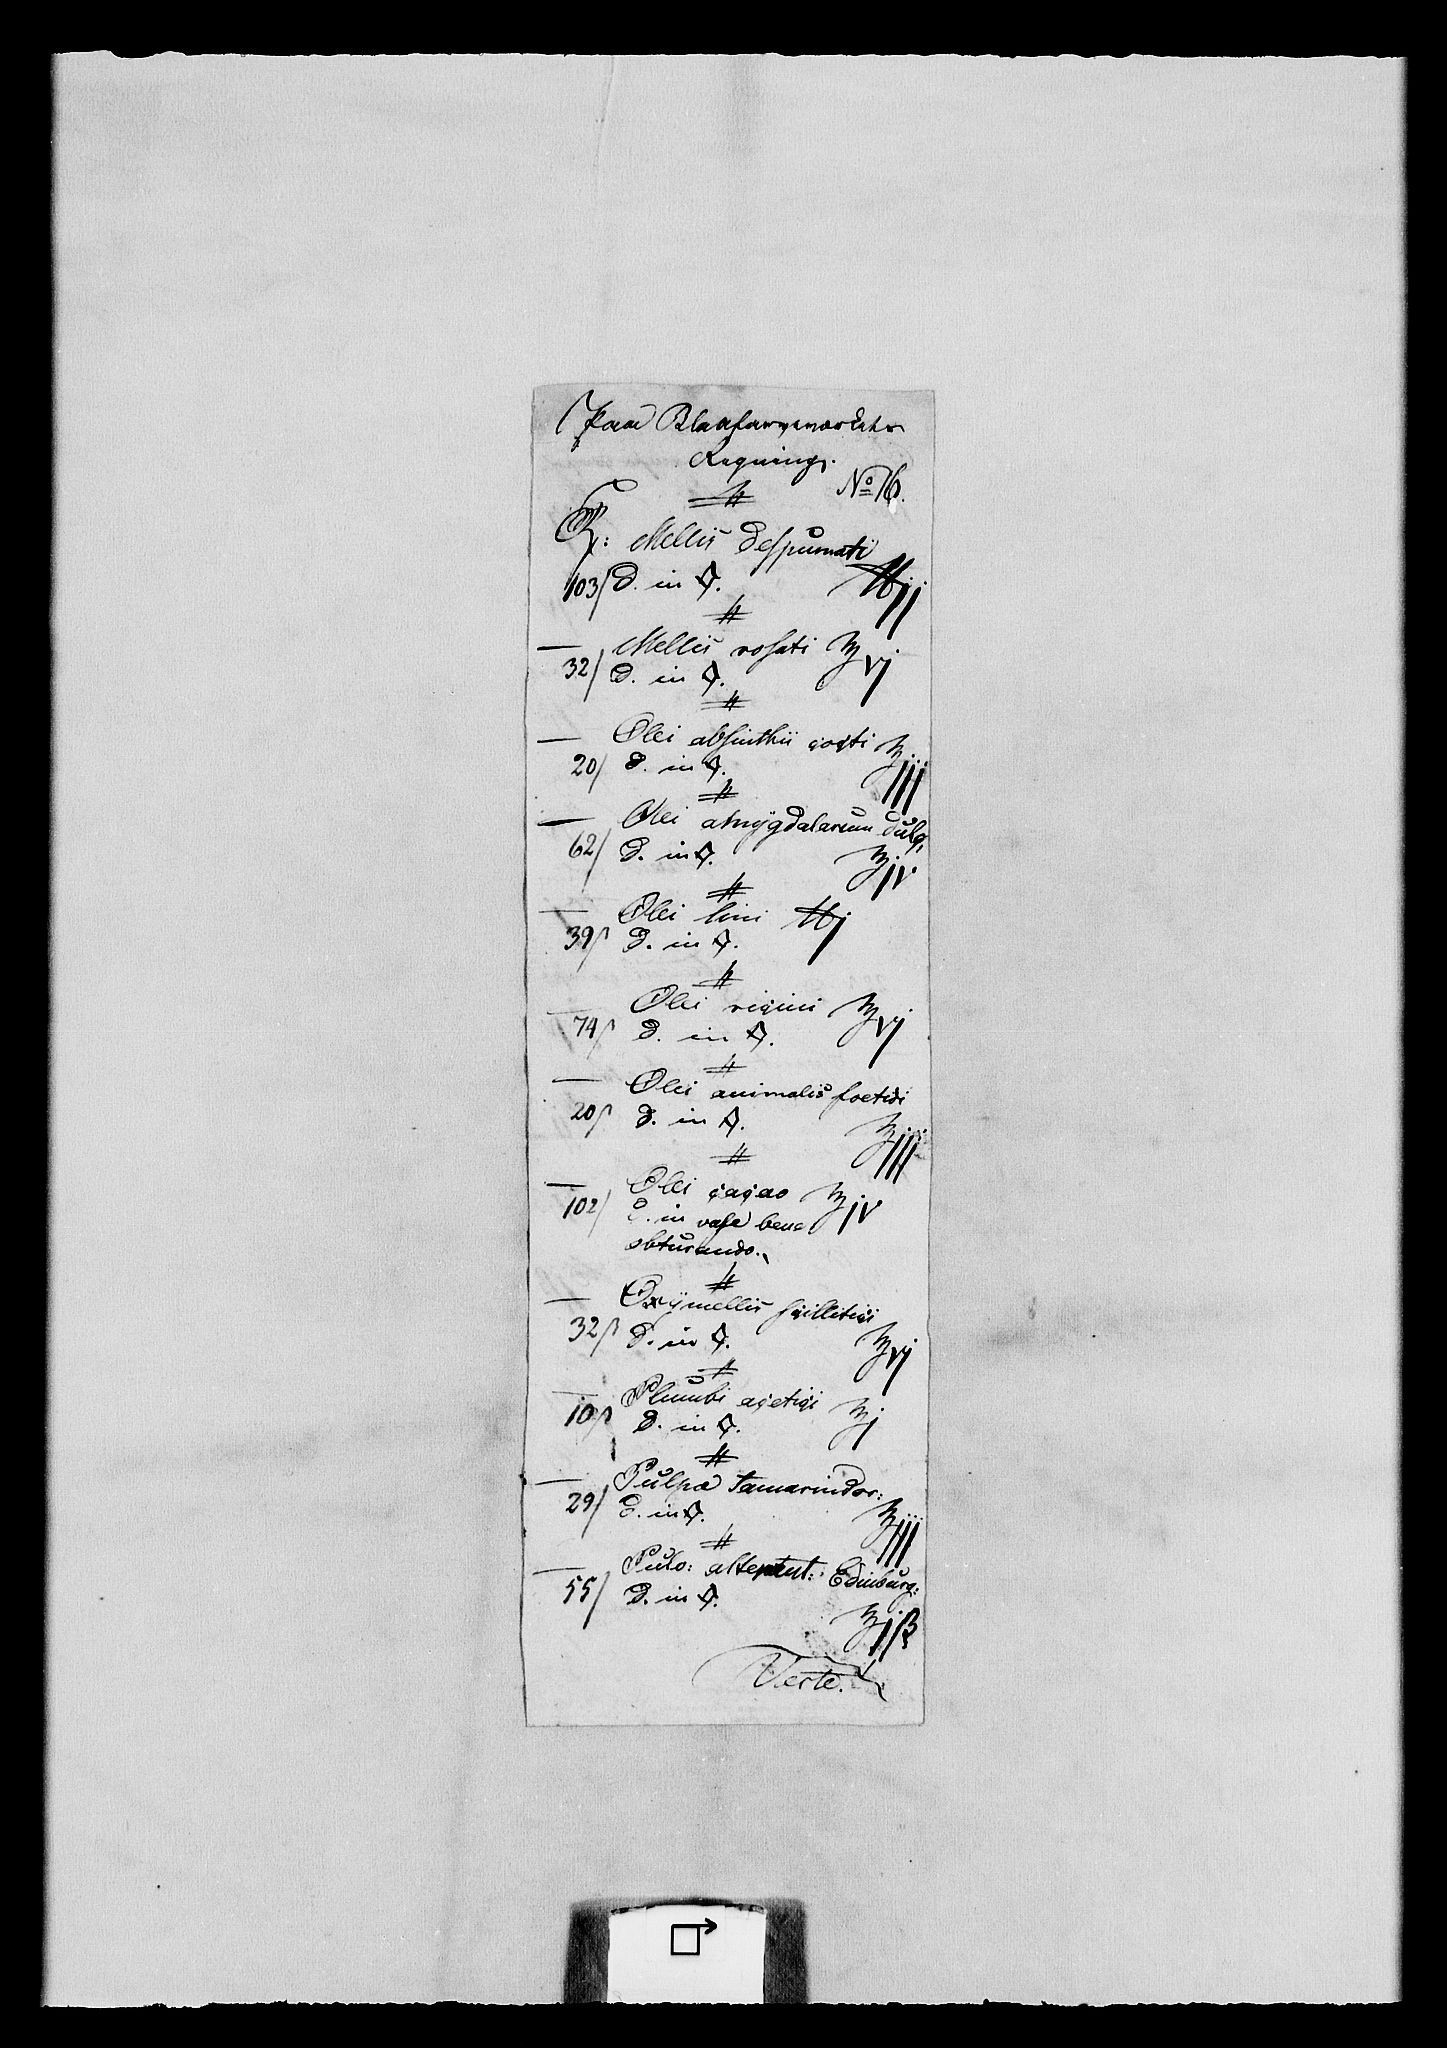 Paa Blaafarveværkets
Regning.
No 16.
#
℞: Mellis despumati
℔jj
103/ D. in ⧫.
#
— Mellis rosati ℥vj
32/ D. in ⧫.
#
— Olei absinthii cocti ℥jjj
20/ D. in ⧫.
#
— Olei amÿgdalarum dulc,
62/ D. in ⧫. ℥jv
#
— Olei lini ℔j
39/ D. in ⧫.
#
— Olei ricini ℥vj
74/ D. in ⧫.
#
— Olei animalis foetidi
20/ D. in ⧫. ℥jjj
#
— Olei cacao ℥jv
102/ D. in vase bene
obturando.
#
— Oxÿmellis scillitici
32/ D. in ⧫. ℥vj
#
— Plumbi acetici ℥j
10/ D. in ⧫.
#
— Pulpæ tamarindor:
29/ D. in ⧫. ℥jjj
#
— Pulv: Edinburg:
55/ D. in ⧫.
℥jß
Verte.